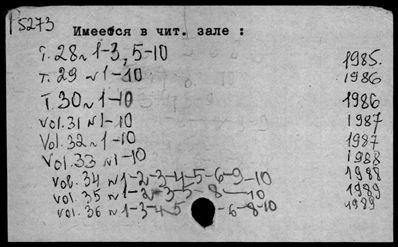 15273
Имеется в чит. зале :
Т. 28 N 1-3, 5-10 1985.
т. 29 N 1-10 1986
Т. 30 N 1-10 1986
vol. 31 N 1-10 1987
Vol. 32 N 1-10 1987
Vol. 33 N 1-10 1988
vol. 34 N 1-2-3-4-5-6-9-10 1988
vol. 35 N 1-2-3-5-8-10 1989
vol. 36 N 1-3-4-5-6-8-10 1989